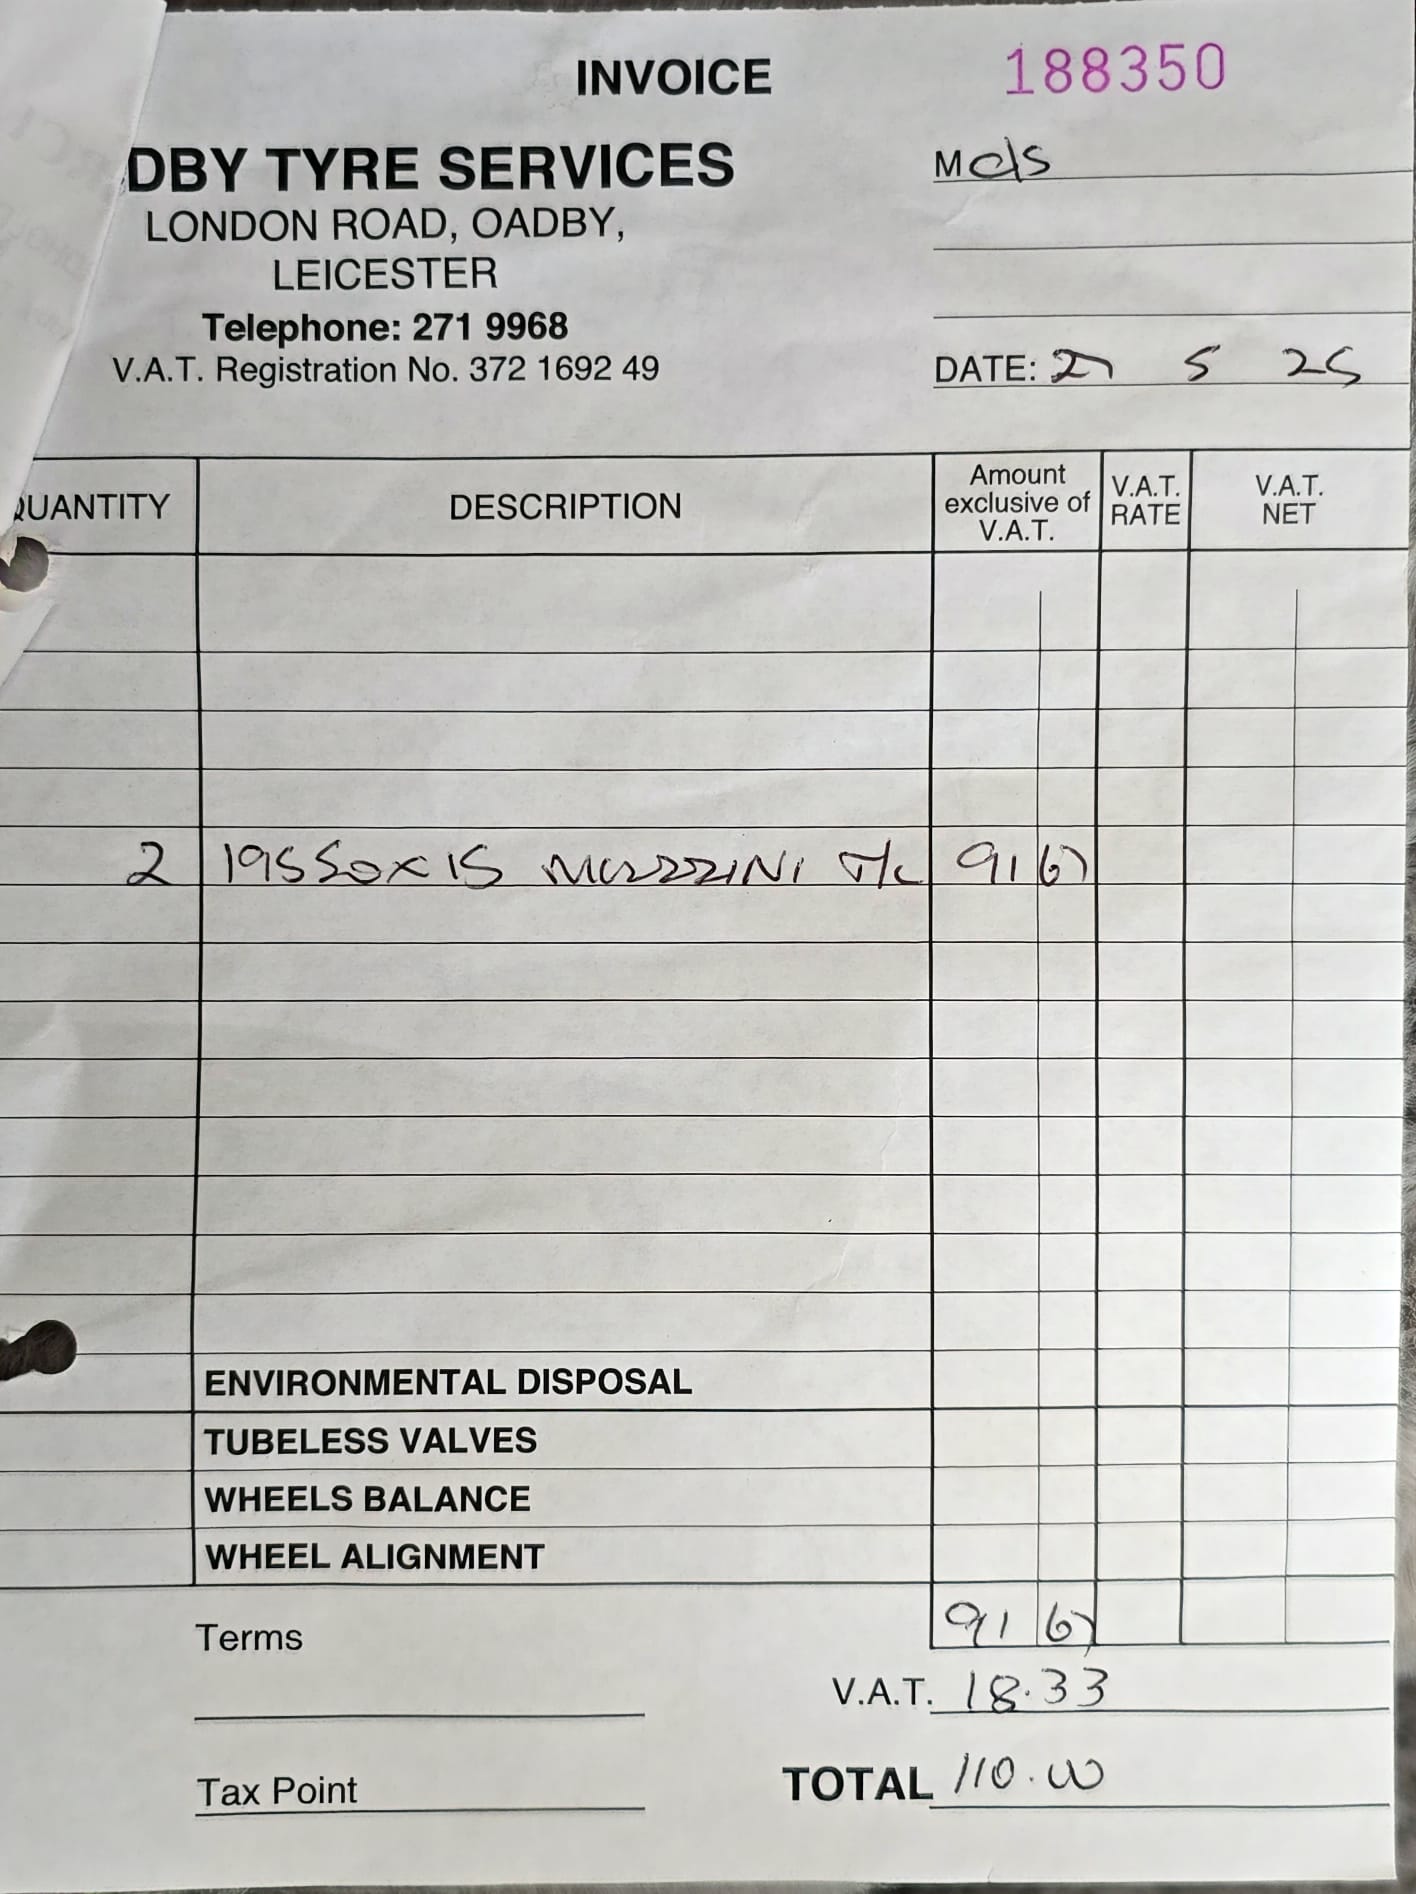 INVOICE 188350
DBY TYRE SERVICES
LONDON ROAD, OADBY,
LEICESTER
Telephone: 271 9968
V.A.T. Registration No. 372 1692 49
M
DATE: 27 5 25
QUANTITY DESCRIPTION Amount exclusive of V.A.T. V.A.T. RATE V.A.T. NET
2 195 50 x 15 91 67
ENVIRONMENTAL DISPOSAL
TUBELESS VALVES
WHEELS BALANCE
WHEEL ALIGNMENT
91 67
Terms
V.A.T. 18.33
Tax Point
TOTAL 110.00